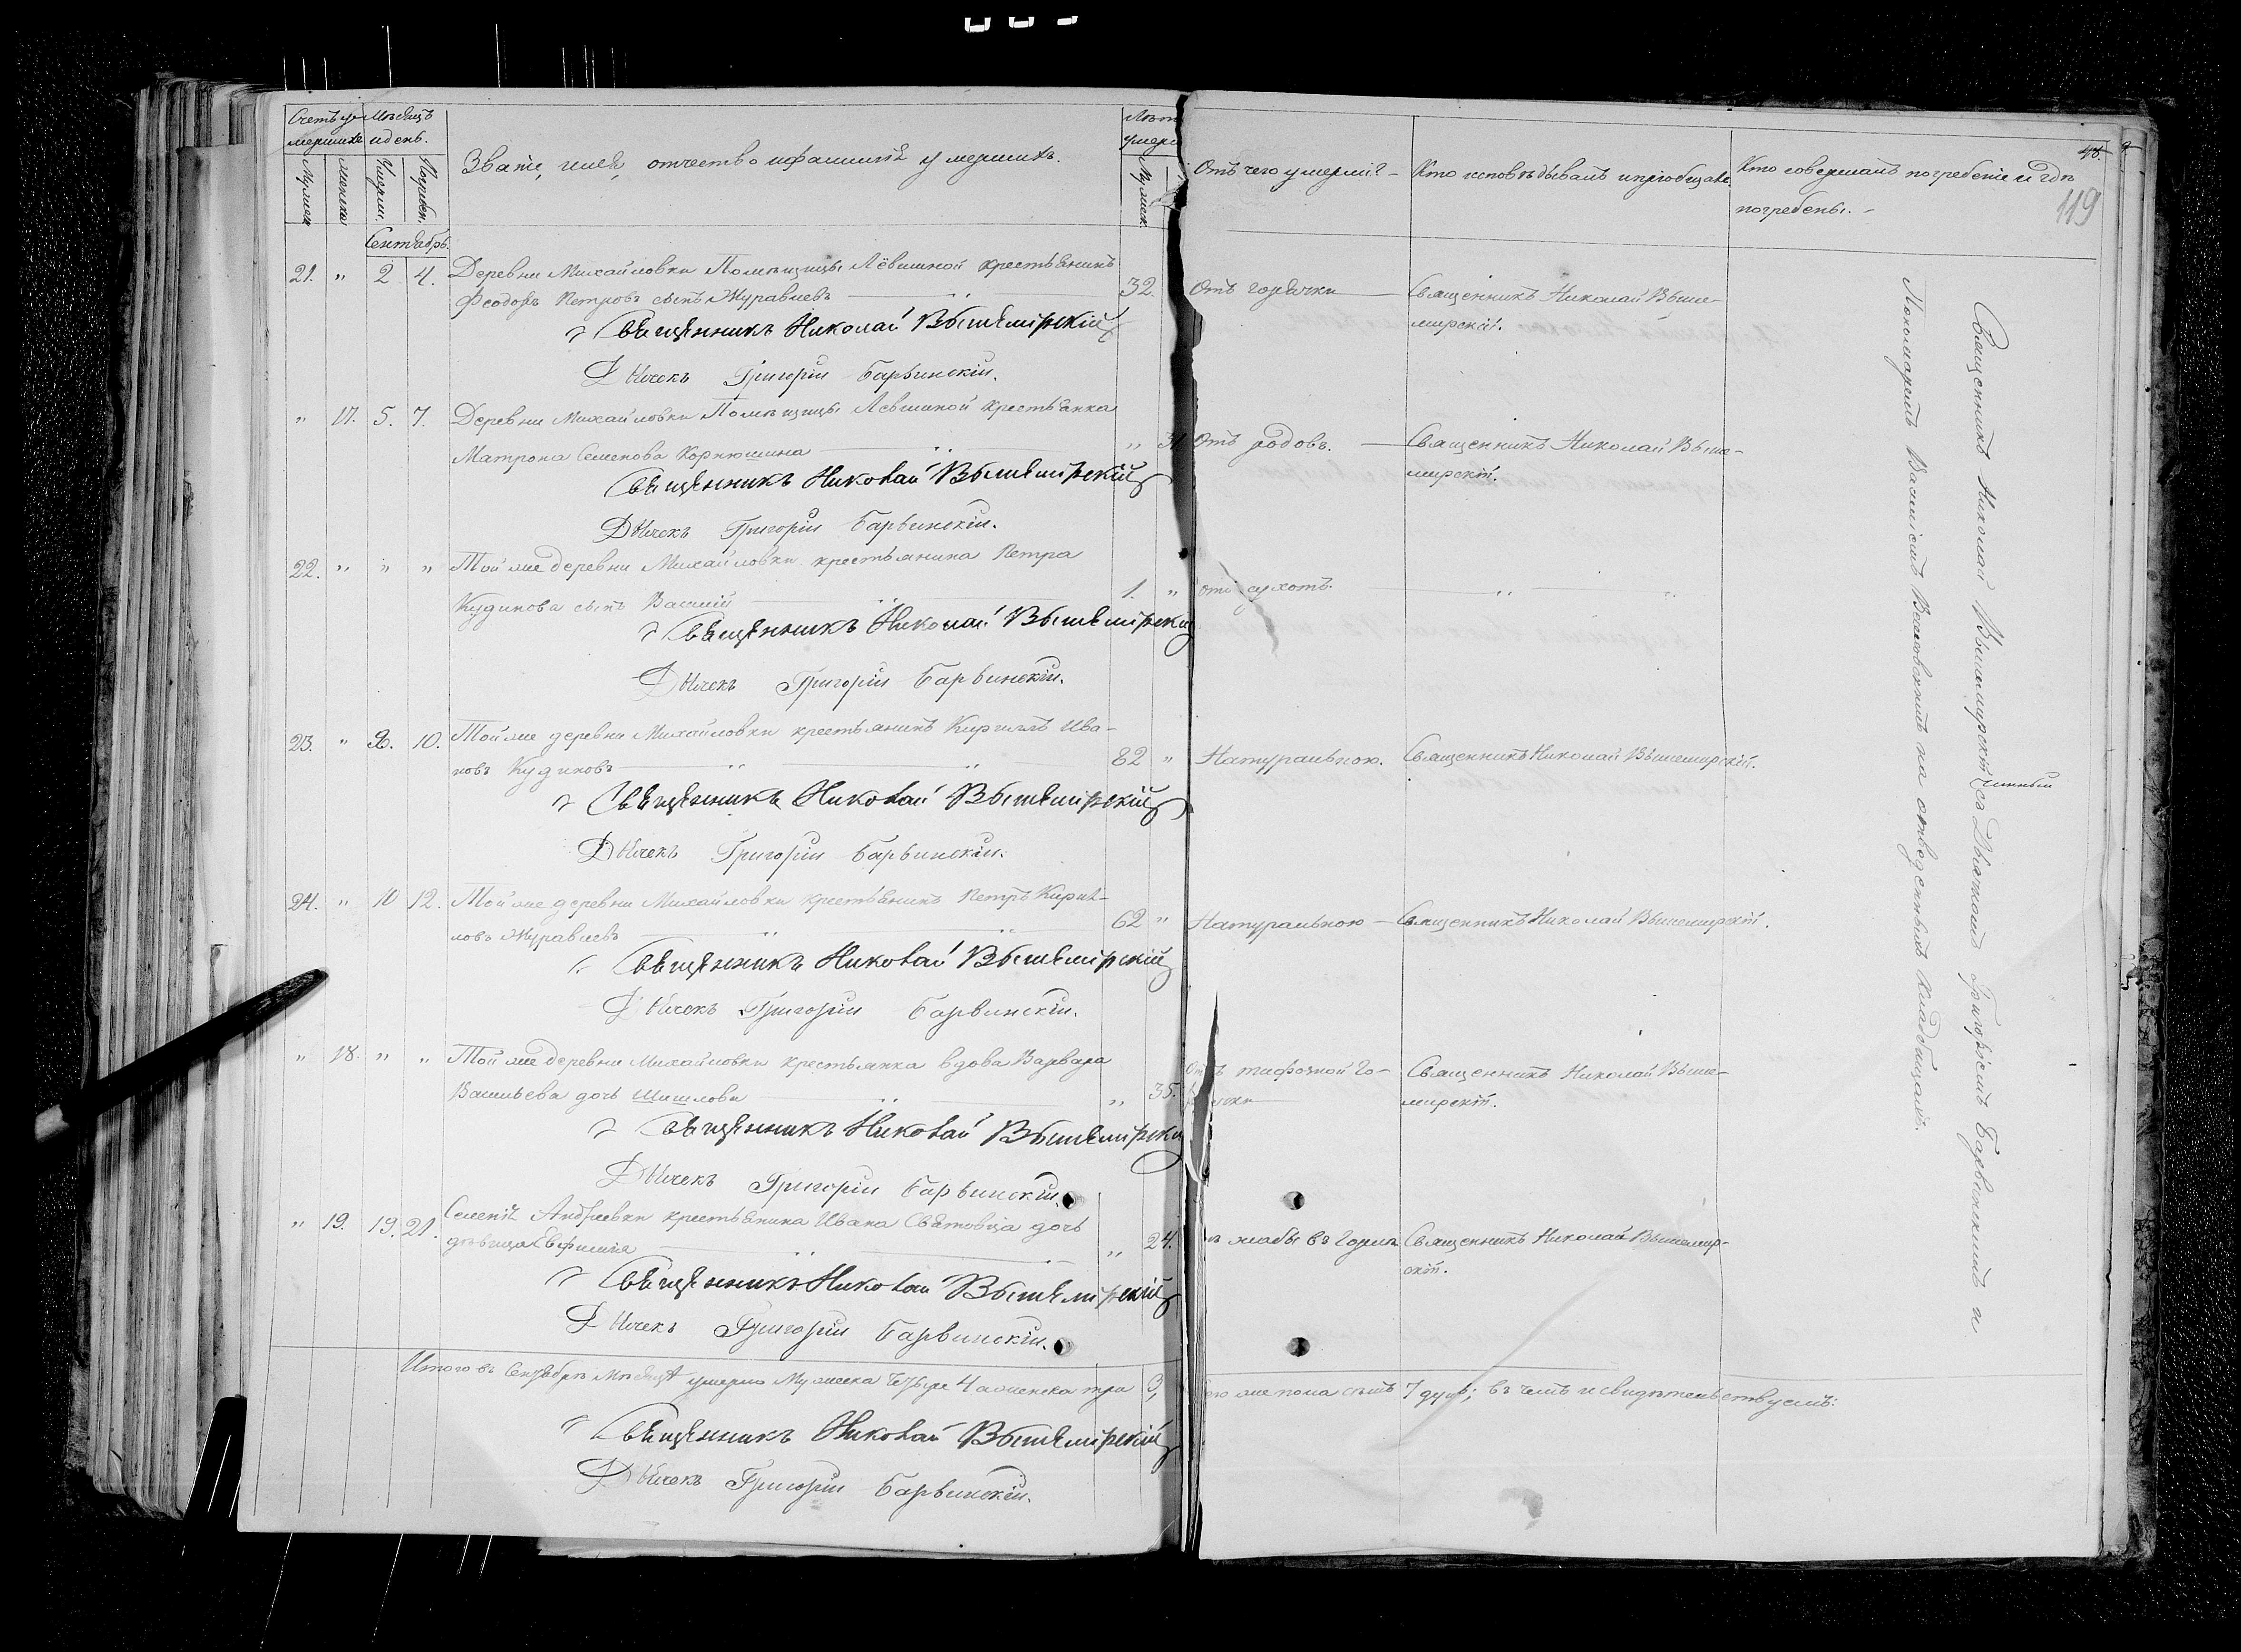 Счетъ у-
мершихъ
Мѣсяцъ
и день.
Званіе, имя, отчество и фамилія умершихъ.
Лѣта
умерш
Отъ чего умерли? –
Кто исповѣдывалъ и пріобщалъ.
Кто совершалъ погребеніе и гдѣ
погребены. –
119
Мужеск.
женска
Умерли.
Погребен.
Мужеск.
Сентябрь.
21. " 2 4. Деревни Михайловки Помѣщицы Лёвшиной крестьянинъ
Феодоръ Петровъ сынъ Журавлевъ 32. Отъ горячки Священникъ Николай Выше-
мирскій.
Священникъ Николай Вышемірскій
Дьячекъ Григорій Барвинскій.
" 17. 5. 7. Деревни Михайловки Помѣщицы Левшиной крестьянка
Матрона Семенова Корнюшина " Отъ родовъ. Священникъ Николай Выше-
мирскій.
Священникъ Николай Вышемірскій
Дьячекъ Григорій Барвинскій.
22. " " " Той же деревни Михайловки крестьянина Петра
Кудинова сынъ Василій 1. " отъ сухотъ. " "
Священникъ Николай Вышемірскій
Дьячекъ Григорій Барвинскій.
23. " 8. 10. Той же деревни Михайловки крестьянинъ Кириллъ Ива-
новъ Кудиновъ 82 " Натуральною. Священникъ Николай Вышемирскій.
Священникъ Николай Вышемірскій
Дьячекъ Григорій Барвинскій.
24. " 10 12. Той же деревни Михайловки крестьянинъ Петръ Кирил-
ловъ Журавлевъ 62 " Натуральною – Священникъ Николай Вышемирскій.
Священникъ Николай Вышемірскій
Дьячекъ Григорій Барвинскій.
" 18. " " Той же деревни Михайловки крестьянка вдова Варвара
Васильева дочь Шишлова " 35. Отъ тифозной го-
рячки Священникъ Николай Выше-
мирскій.
Священникъ Николай Вышемірскій
Дьячекъ Григорій Барвинскій.
" 19. 19. 21. Селенія Андреевки крестьянина Ивана Святовца дочь
дѣвица Евфимія " 24. жабы въ горлѣ Священникъ Николай Вышемир-
скій.
Священникъ Николай Вышемірскій
Дьячекъ Григорій Барвинскій.
Итого въ Сентябрѣ Мѣсяцѣ умерло Мужеска четыре 4 а женска три 3, же пола семь 7 душъ; въ чемъ и свидѣтельствуемъ:
Священникъ Николай Вышемірскій
Дьячекъ Григорій Барвинскій.
Священникъ Николай Вышемирскій съ Дьячкомъ Григоріемъ Барвинскимъ и
Пономаремъ Василіемъ на отведенныхъ кладбищахъ.